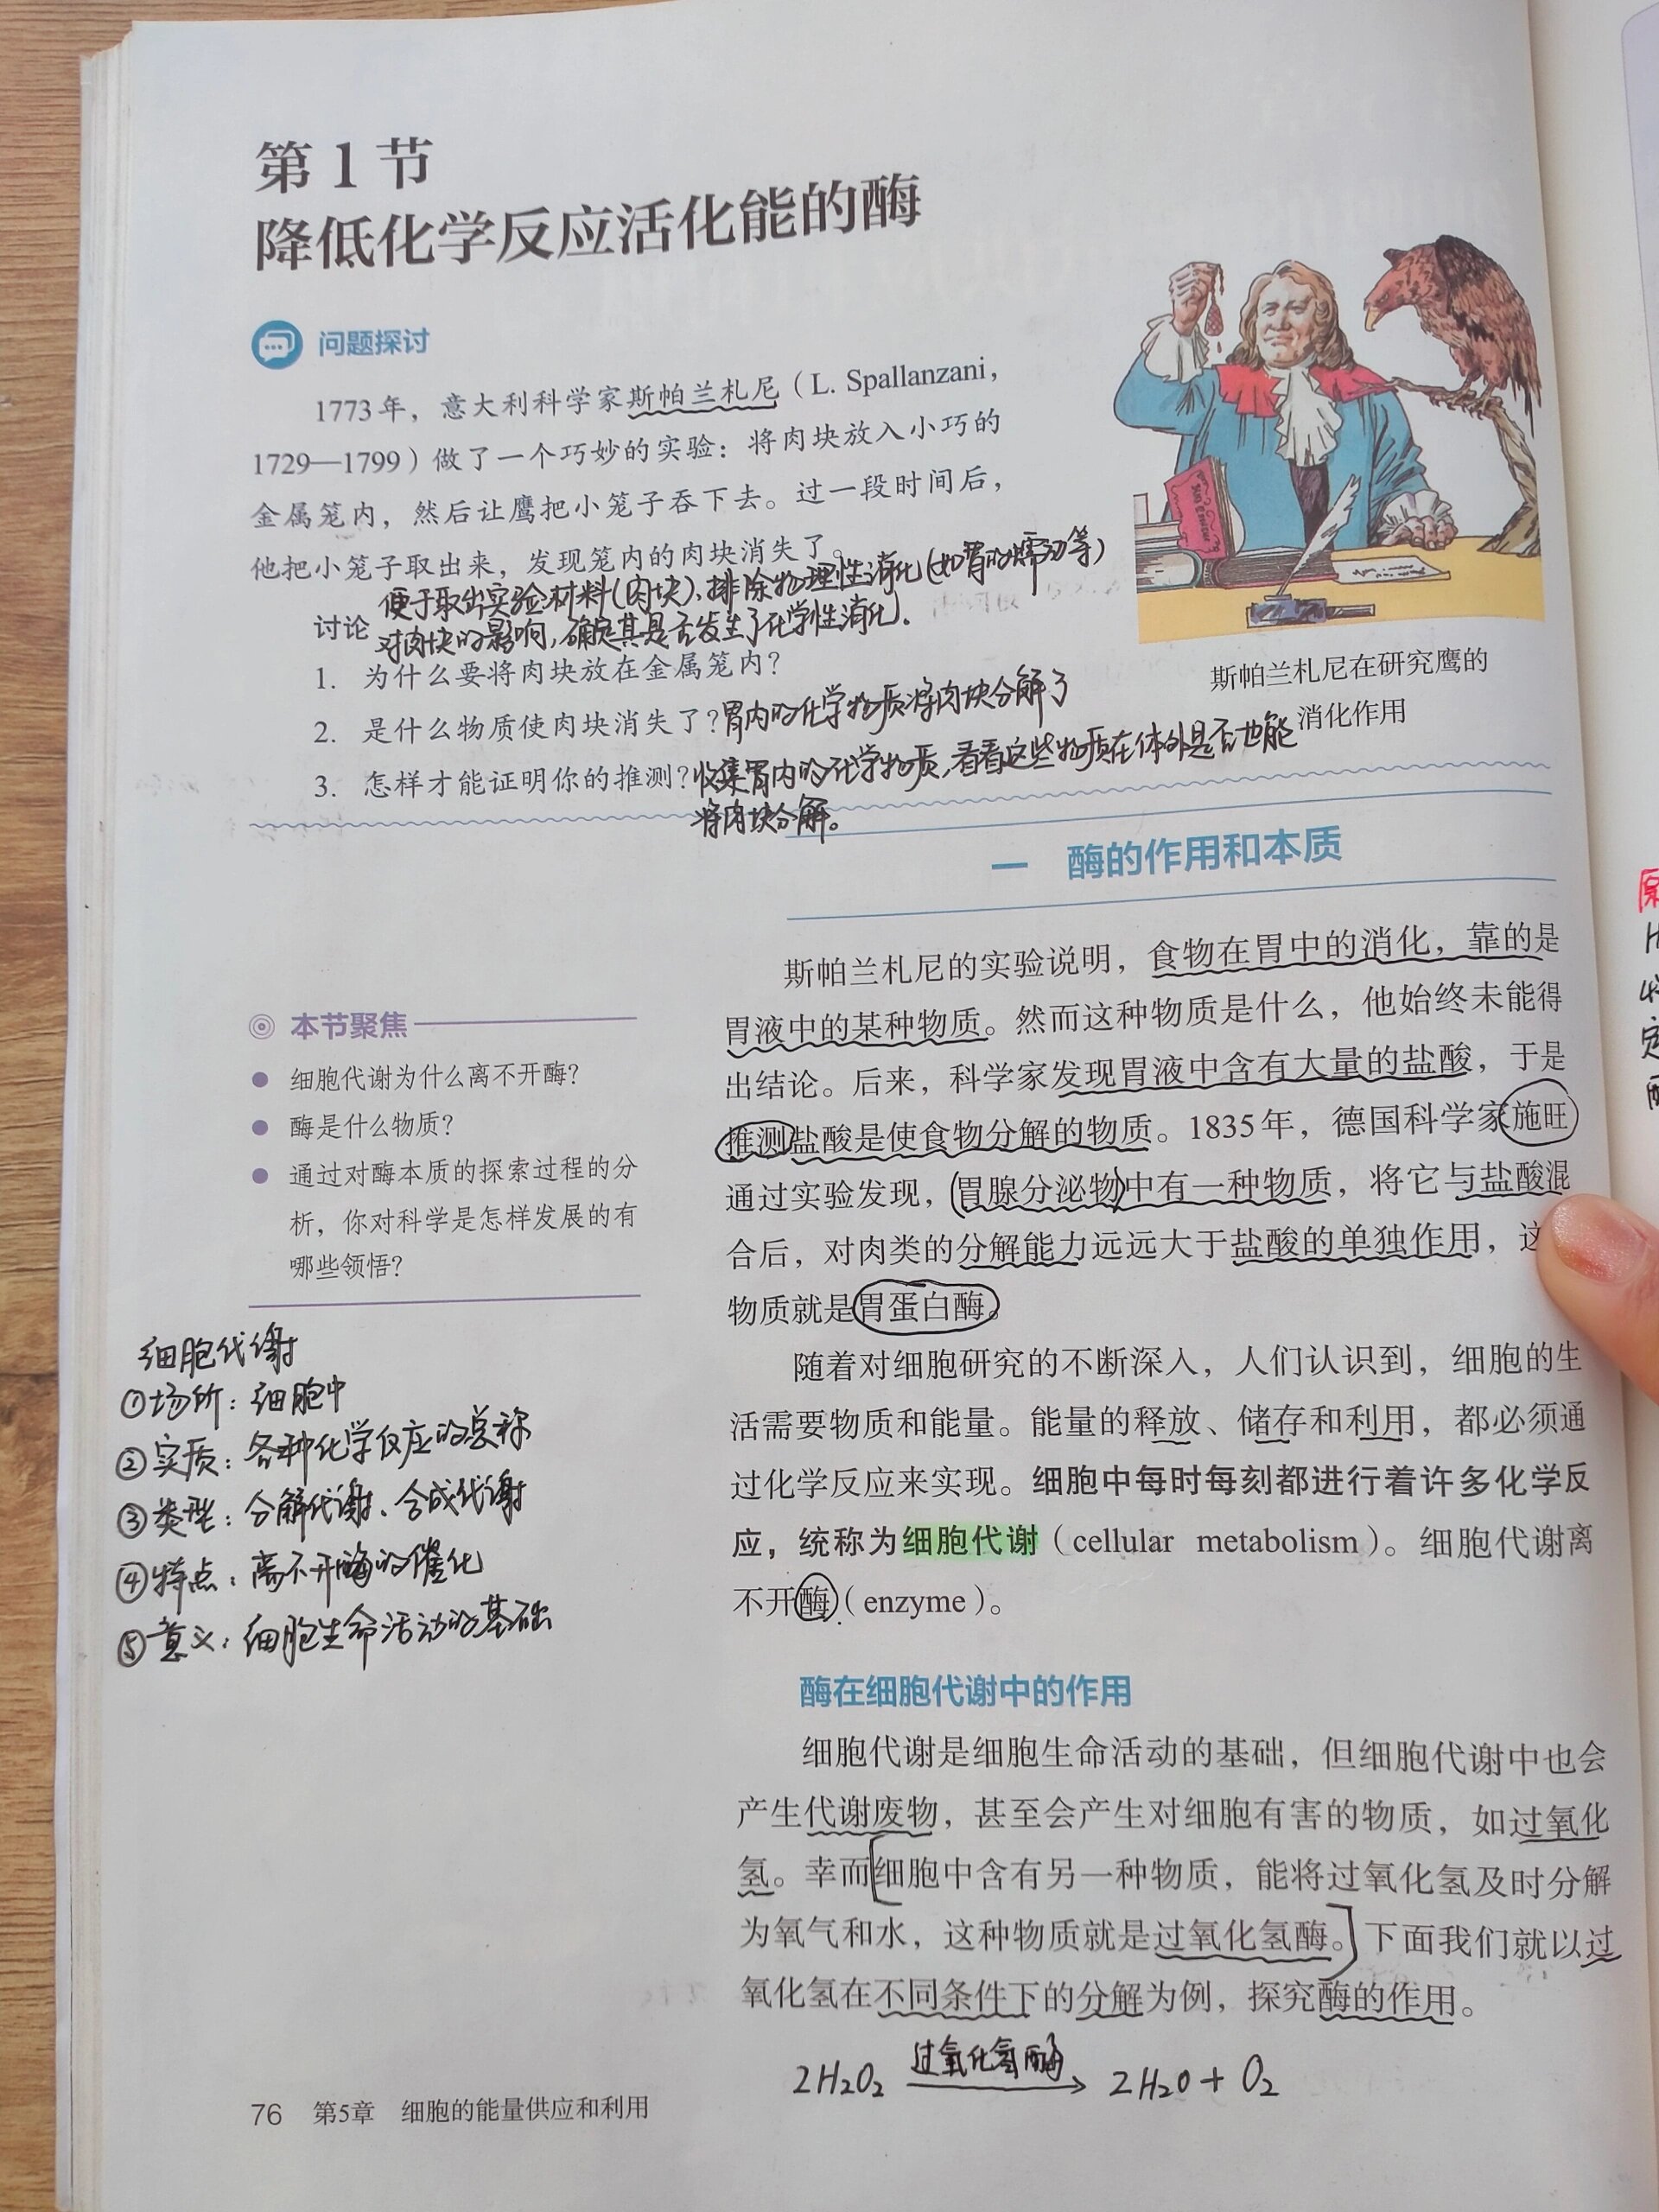 第1节
降低化学反应活化能的酶
问题探讨
1773年，意大利科学家斯帕兰札尼（L. Spallanzani，
1729—1799）做了一个巧妙的实验：将肉块放入小巧的
金属笼内，然后让鹰把小笼子吞下去。过一段时间后，
他把小笼子取出来，发现笼内的肉块消失了。
便于取出实验材料(肉块)、排除物理性消化(如胃的蠕动等)
讨论
对肉块的影响,确定其是否发生了化学性消化.
1. 为什么要将肉块放在金属笼内？
2. 是什么物质使肉块消失了？胃内的化学物质将肉块分解了
3. 怎样才能证明你的推测？收集胃内的化学物质,看看这些物质在体外是否也能
将肉块分解。
斯帕兰札尼在研究鹰的
消化作用
一 酶的作用和本质
本节聚焦
细胞代谢为什么离不开酶？
酶是什么物质？
通过对酶本质的探索过程的分
析，你对科学是怎样发展的有
哪些领悟？
细胞代谢
①场所：细胞中
②实质：各种化学反应的总称
③类型：分解代谢、合成代谢
④特点：离不开酶的催化
⑤意义：细胞生命活动的基础
斯帕兰札尼的实验说明，食物在胃中的消化，靠的是
胃液中的某种物质。然而这种物质是什么，他始终未能得
出结论。后来，科学家发现胃液中含有大量的盐酸，于是
推测盐酸是使食物分解的物质。1835年，德国科学家施旺
通过实验发现，(胃腺分泌物)中有一种物质，将它与盐酸混
合后，对肉类的分解能力远远大于盐酸的单独作用，这
物质就是胃蛋白酶。
随着对细胞研究的不断深入，人们认识到，细胞的生
活需要物质和能量。能量的释放、储存和利用，都必须通
过化学反应来实现。细胞中每时每刻都进行着许多化学反
应，统称为细胞代谢（cellular metabolism）。细胞代谢离
不开酶（enzyme）。
酶在细胞代谢中的作用
细胞代谢是细胞生命活动的基础，但细胞代谢中也会
产生代谢废物，甚至会产生对细胞有害的物质，如过氧化
氢。幸而[细胞中含有另一种物质，能将过氧化氢及时分解
为氧气和水，这种物质就是过氧化氢酶。]下面我们就以过
氧化氢在不同条件下的分解为例，探究酶的作用。
过氧化氢酶
2H₂O₂ ⟶ 2H₂O + O₂
76 第5章 细胞的能量供应和利用